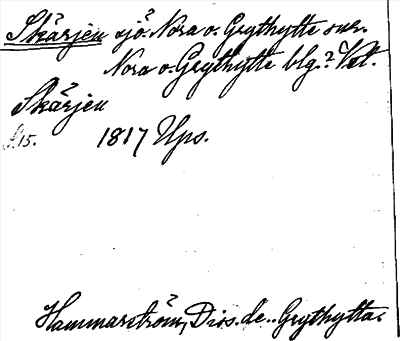 Skärjen sjö. Nora o. Grythytte snr.
Nora o. Grythytte blg.? Vstl.
Skärjen
S. 15. 1817 Ups.
Hammarström, Diss. de.. Grythytta.